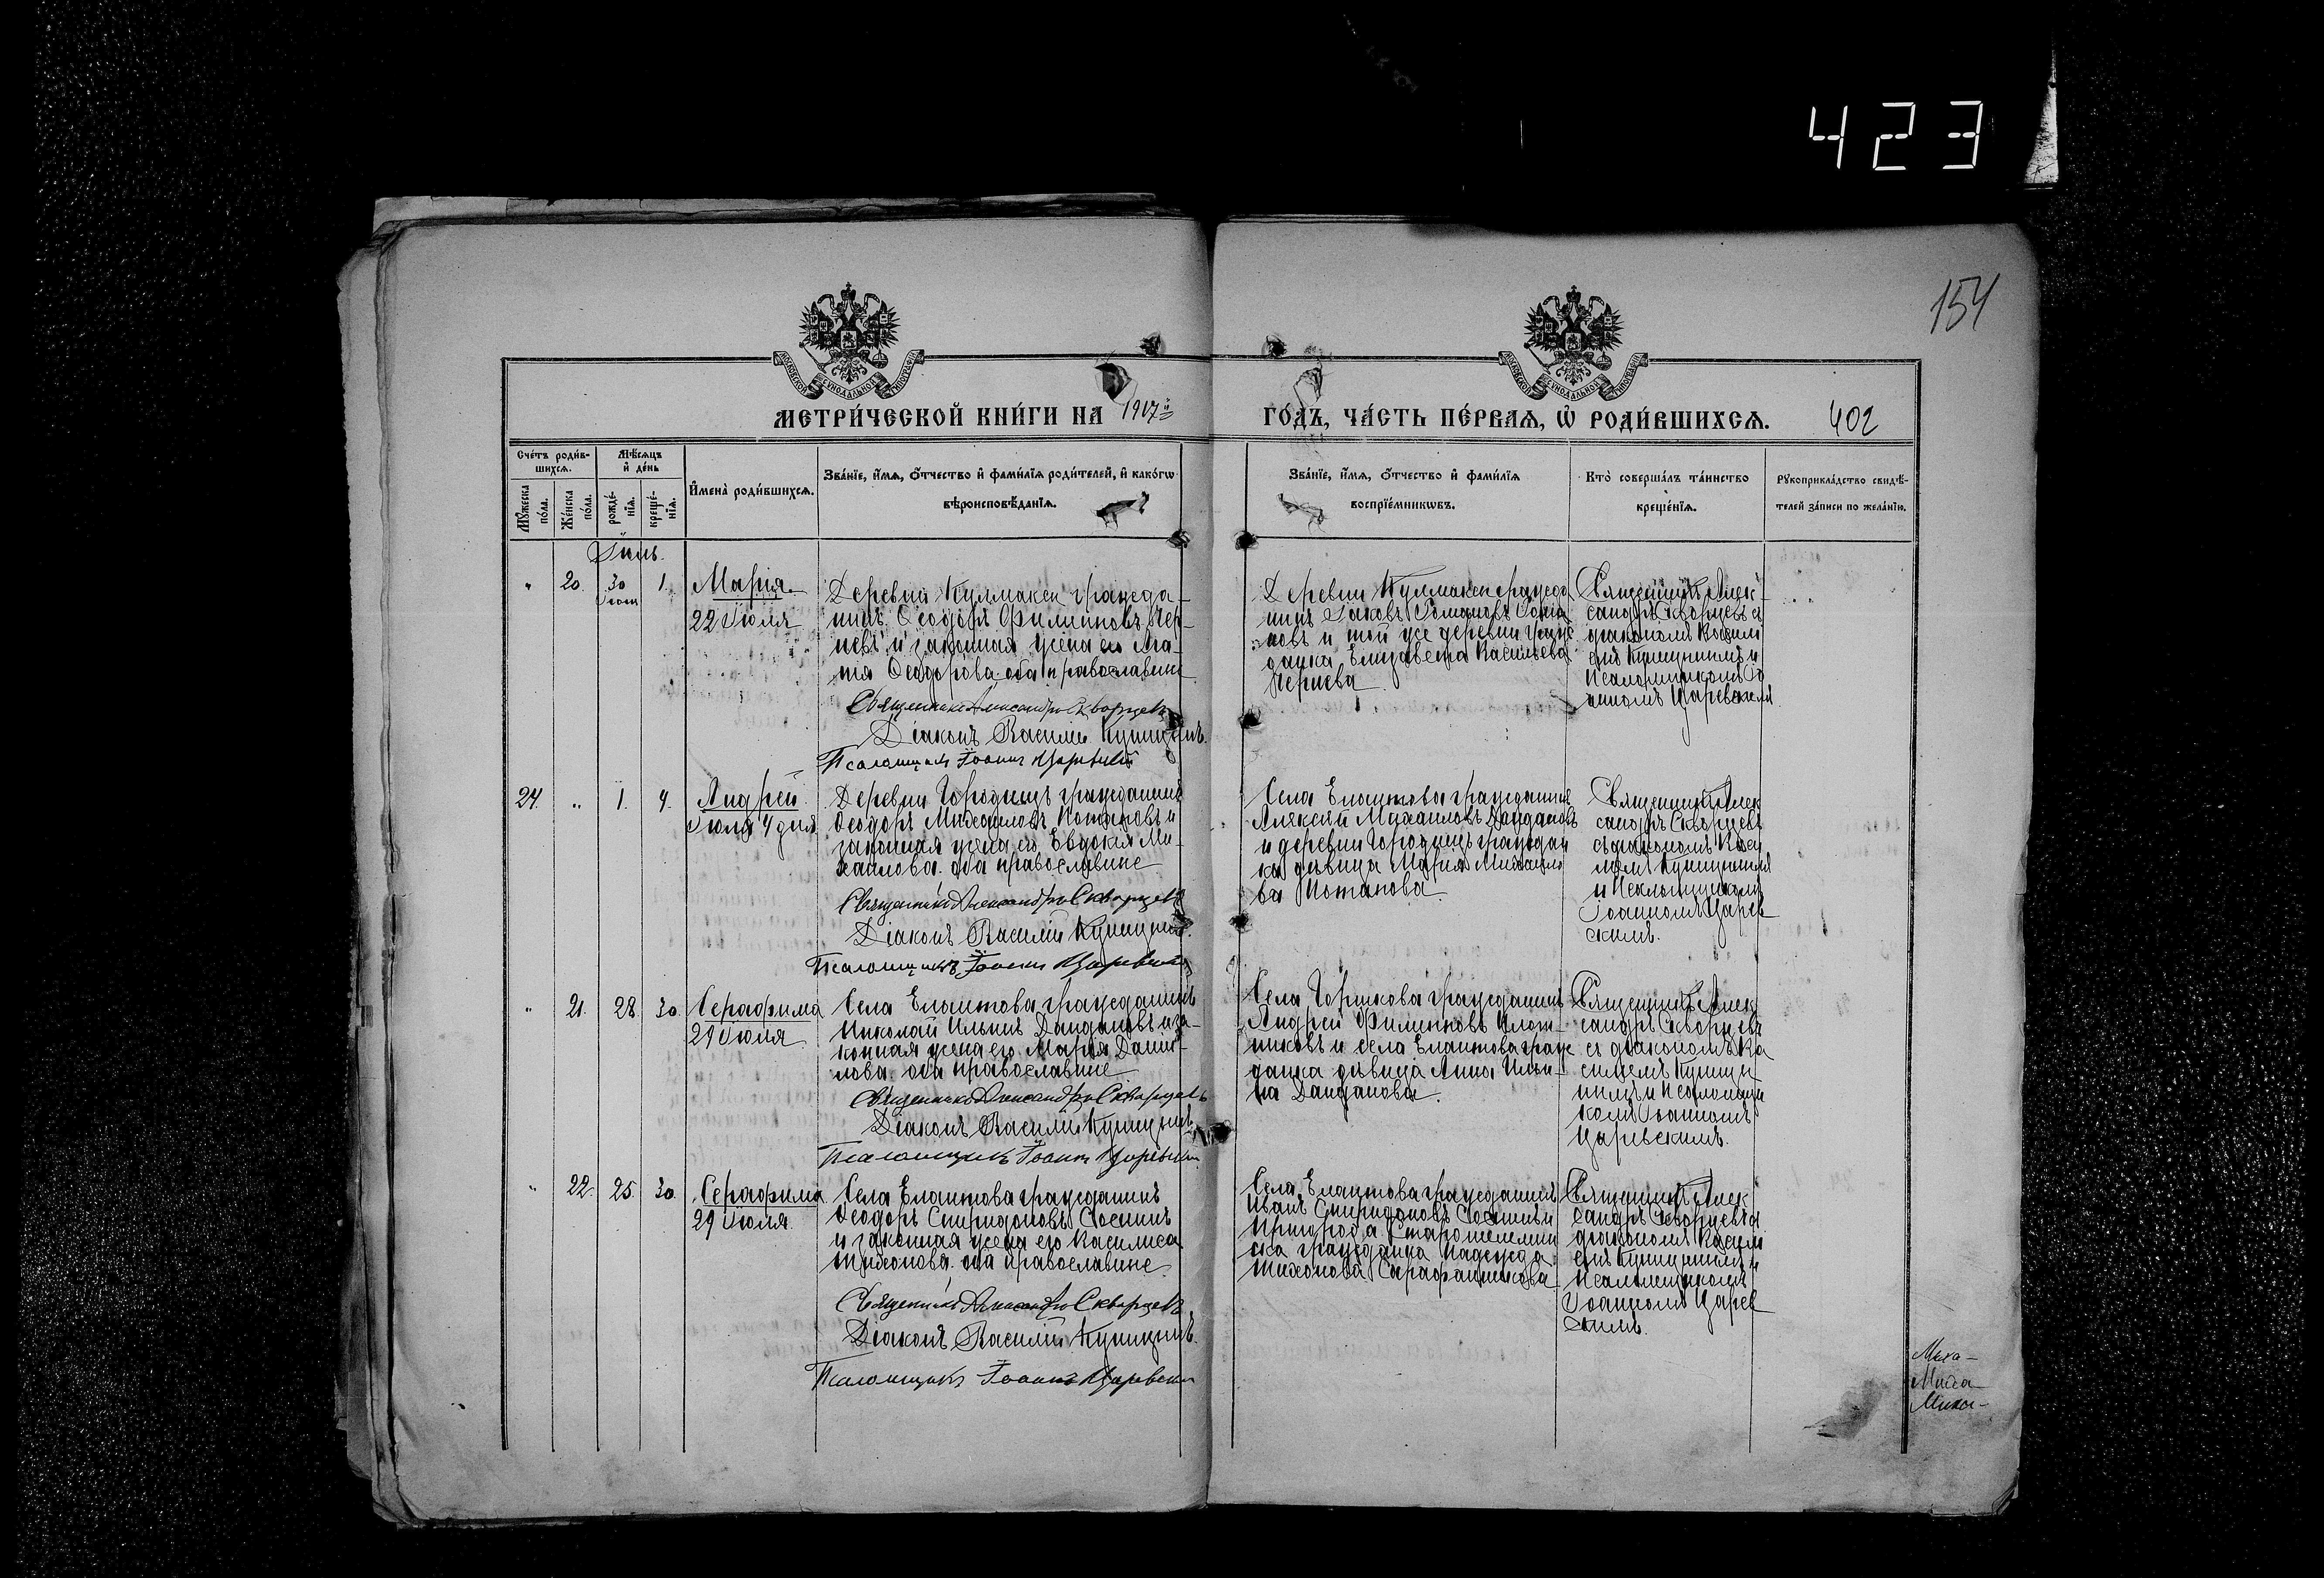 423
154
МЕТРИ́ЧЕСКОЙ КНИ́ГИ НА 1917й ГО́ДЪ, ЧА́СТЬ ПЕ́РВАЯ, Ѡ҆ РОДИ́ВШИХСЯ. 402
Сче́тъ роди́в-
шихся.
Мꙋ́жеска по́ла.
Же́нска по́ла.
Мѣ́сяцъ
и҆ де́нь
рожде́-
нїя.
креще́-
нїя.
И҆мена̀ роди́вшихся.
Зва́нїе, и҆́мя, ѻ҆́тчество и҆ фами́лїя роди́телей, и҆ како́гѡ
вѣроисповѣ́данїя.
Зва́нїе, и҆́мя, ѻ҆́тчество и҆ фами́лїя
воспрїе́мникѡвъ.
Кто̀ соверша́лъ та́инство
креще́нїя.
Рꙋкоприкла́дство свидѣ́-
телей за́писи по жела́нїю.
Іюль.
" 20. 30 Іюня 1.
Марія
22 Іюля
Деревни Кулмаксы гражда-
нинъ Ѳеодоръ Филипповъ Чер-
невъ и законная жена его
Ѳеодорова. оба православные
Священникъ Александръ Скворцевъ
Діаконъ Василій Куницынъ.
Псаломщикъ Іоаннъ Царевскій
Деревни Кулмаксы гражда
нинъ Іаковъ Романовъ
и той же деревни граж
данка Елизавета Васильева
Чернева.
Священникъ Алек-
сандръ Скворцевъ съ
діакономъ Васили
емъ Куницынымъ и
Псаломщикомъ Іо
анномъ Царевскимъ
24. " 1. 4.
Андрей
Іюля 4 дня
Деревни Городищъ гражданинъ
Ѳеодоръ Михаиловъ Потаповъ и
законная жена его Евдокія Ми-
хаилова. оба православные
Священникъ Александръ Скворцевъ
Діаконъ Василій Куницынъ.
Псаломщикъ Іоаннъ Царевскій
Села Елантова гражданинъ
Алексѣй Михаиловъ Данцановъ
и деревни Городищъ граждан
ка дѣвица Марія Михаило
ва Потапова.
Священникъ Алек
сандръ Скворцевъ
съ діакономъ Васи
ліемъ Куницынымъ
и Псаломщикомъ
Іоанномъ Царев
скимъ.
" 21. 28. 30.
Серафима
29 Іюля
Села Елантова гражданинъ
Николай Ильинъ Данцановъ и за-
конная жена его Марія Дани-
лова. оба православные
Священникъ Александръ Скворцевъ
Діаконъ Василій Куницынъ
Псаломщикъ Іоаннъ Царевскій
Села Горшкова гражданинъ
Андрей Филипповъ Плот-
никовъ и села Елантова граж
данка дѣвица Анна Ильи-
на Данцанова.
Священникъ Алек
сандръ Скворцевъ
съ діакономъ Ва
силіемъ Куницы
нымъ и Псаломщи
комъ Іоанномъ
Царевскимъ.
" 22. 25. 30.
Серафима
29 Іюля
Села Елантова гражданинъ
Ѳеодоръ Спиридоновъ Сосминъ
и законная жена его Василиса
Тихонова. оба православные
Священникъ Александръ Скворцевъ
Діаконъ Василій Куницынъ.
Псаломщикъ Іоаннъ Царевскій
Села Елантова гражданинъ
Иванъ Спиридоновъ Сосминъ и
Пригорода Старошешмин
ска гражданка Надежда
Тихонова Сарафанникова
Священникъ Алек
сандръ Скворцевъ съ
діакономъ Васили
емъ Куницынымъ и
Псаломщикомъ
Іоанномъ Царев
скимъ.
Миха-
Миха-
Миха-